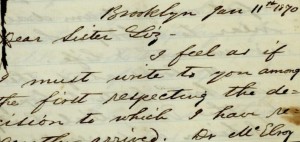 Brooklyn Jan 11th 1890
Dear Sister Loz-
I feel as if
I must write to you among
the first respecting the de-
cision to which I have re-
cently arrived. Dr McElroy